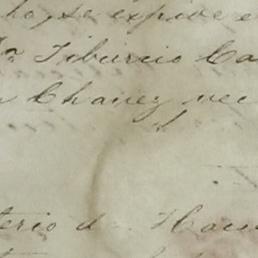 ho, se expide e
Tiburcio Ca
Chavez vec
terio d Hac